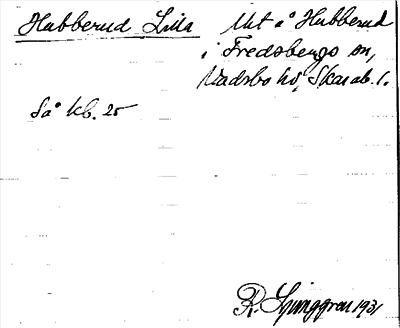 Hubberud Lilla
Ut å Hubberud
i Fredsbergs sn,
Vadsbo hd, Skarab. l.
Så kb. 25
R. Ljunggren 1931